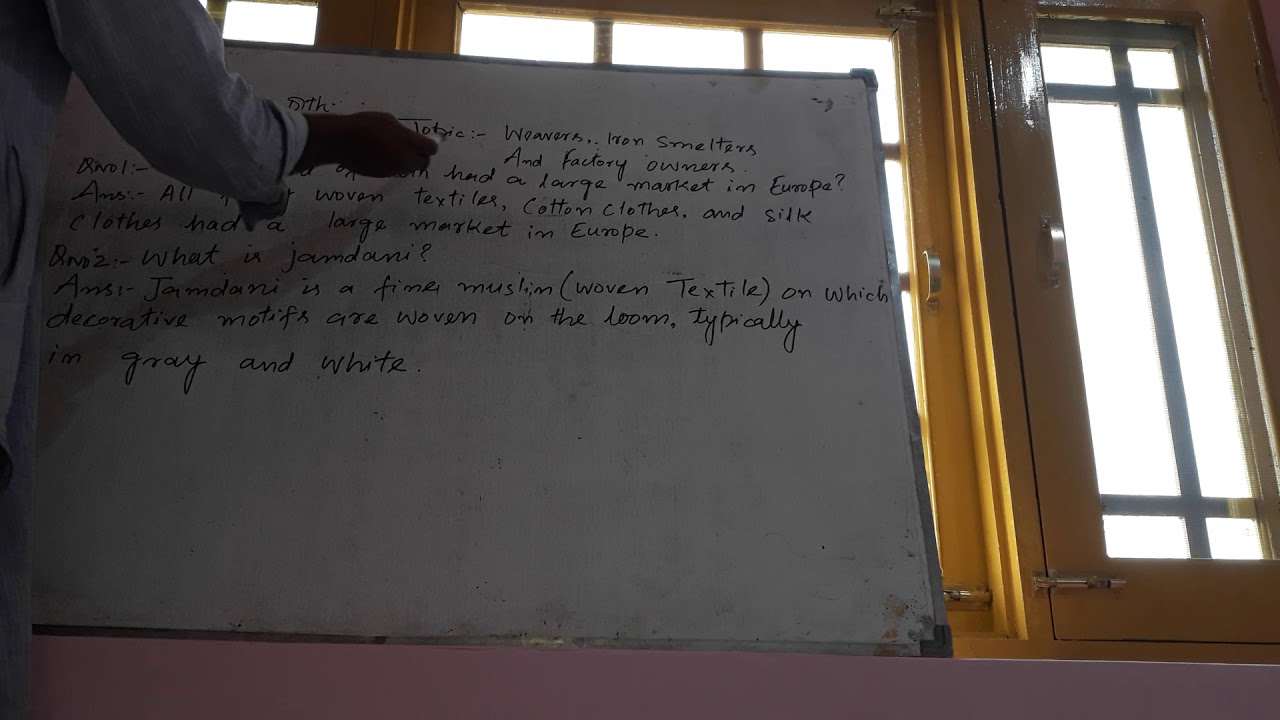 8th
Topic:- Weavers, Iron Smelters
And Factory owners.
Qno1:- had a large market in Europe?
Ans:- All woven textiles, Cotton Clothes, and silk
Clothes had a large market in Europe.
Qno2:- What is jamdani?
Ans:- Jamdani is a fine muslin (woven Textile) on which
decorative motifs are woven on the loom, typically
in gray and white.